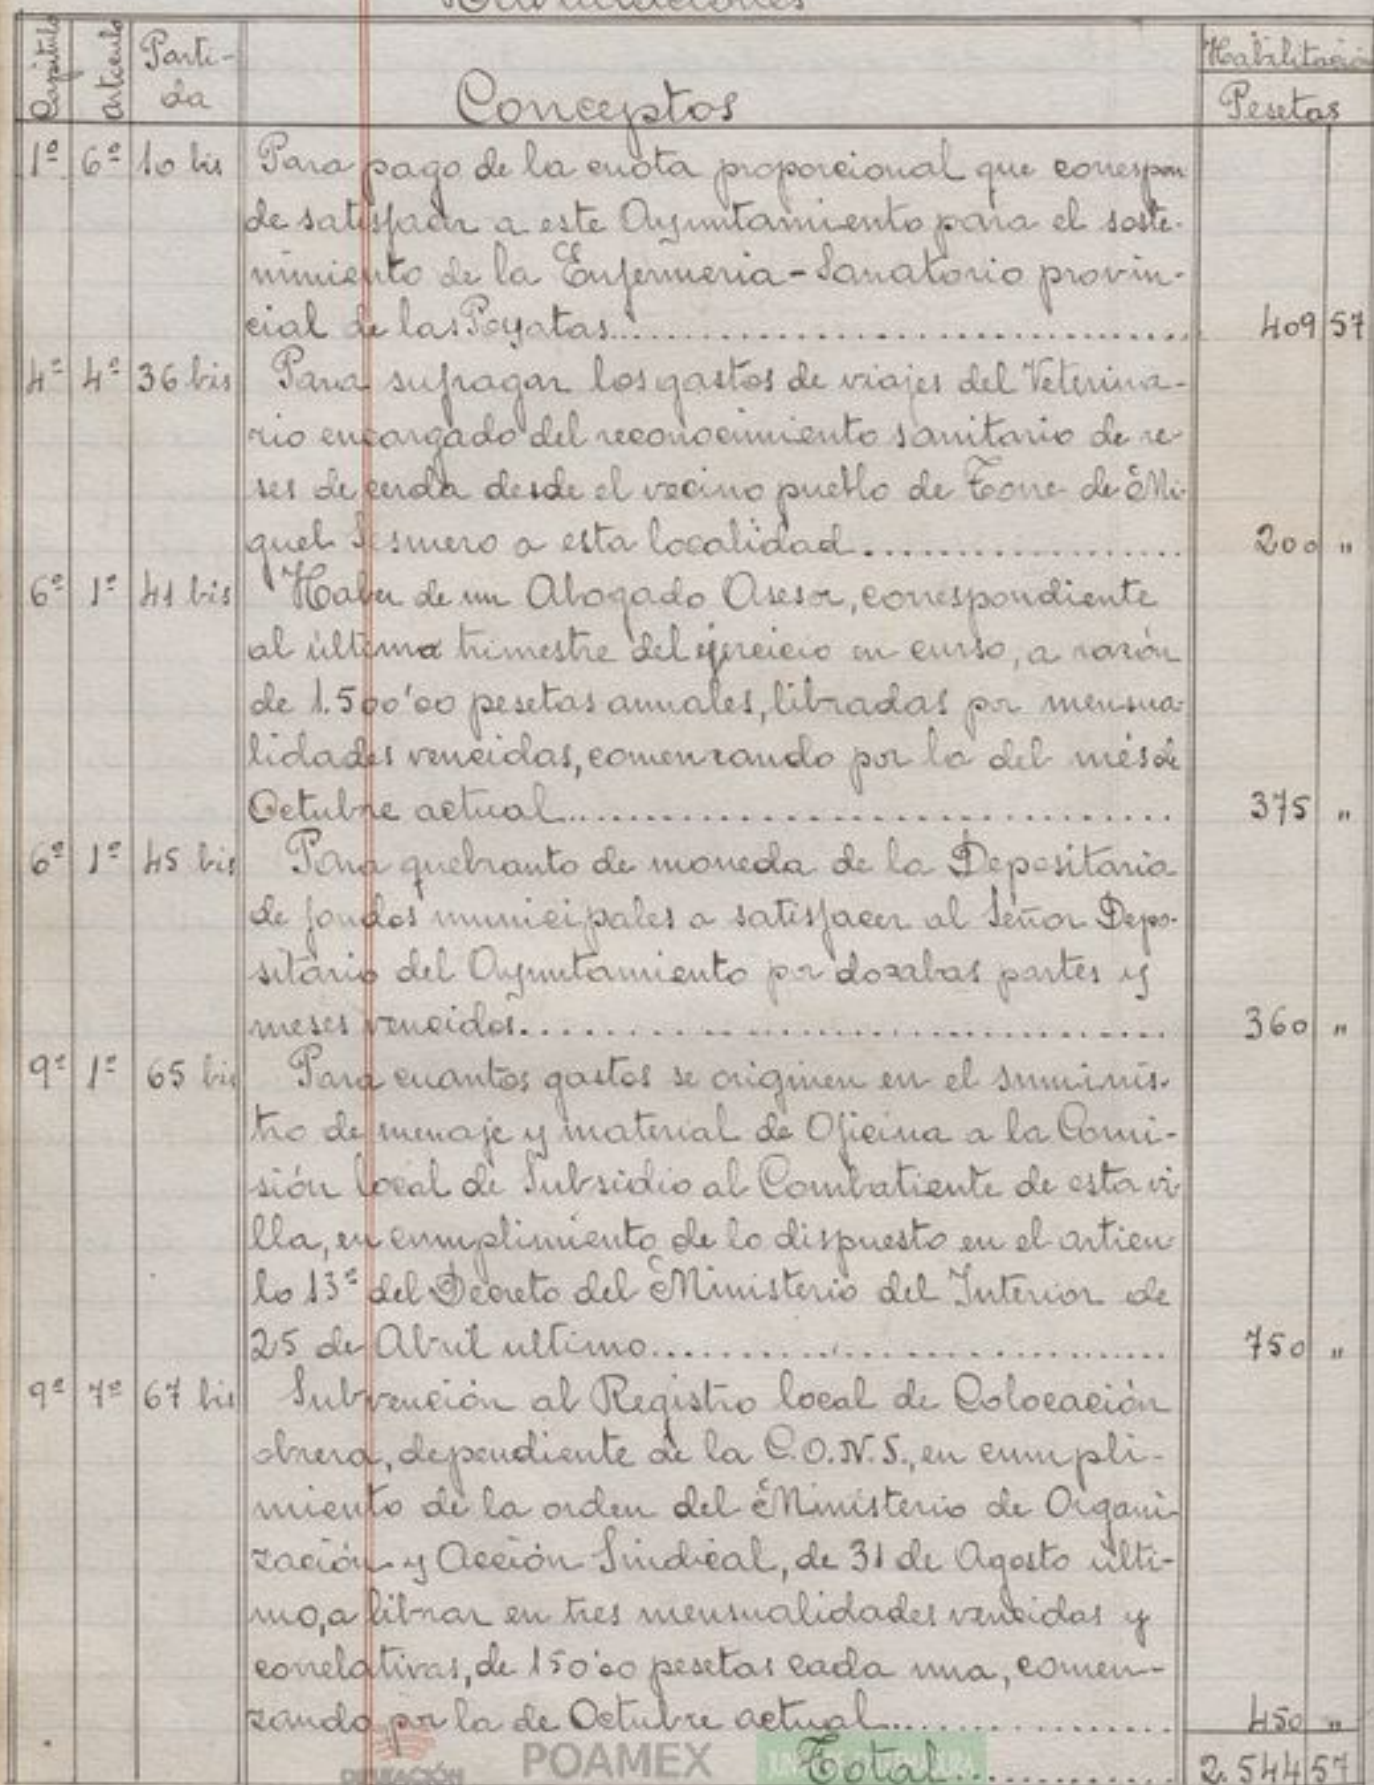 Habilitaciones
Capítulo Artículo Parti- Conceptos Habilitación
da Pesetas
1º 6º 10 bis Para pago de la cuota proporcional que correspon
de satisfacer a este Ayuntamiento para el soste-
nimiento de la Enfermeria-Sanatorio provin-
cial de las Poyatas... 409 57
4º 4º 36 bis Para sufragar los gastos de viajes del Veterina-
rio encargado del reconocimiento sanitario de re-
ses de cerda desde el vecino pueblo de Torre de Mi-
guel Sesmero a esta localidad... 200 "
6º 1º 41 bis Haber de un Abogado Asesor, correspondiente
al último trimestre del ejercicio en curso, a razón
de 1.500'00 pesetas anuales, libradas por mensua-
lidades vencidas, comenzando por la del més de
Octubre actual... 375 "
6º 1º 45 bis Para quebranto de moneda de la Depositaria
de fondos municipales a satisfacer al Señor Depo-
sitario del Ayuntamiento por dozabas partes y
meses vencidos... 360 "
9º 1º 65 bis Para cuantos gastos se originen en el suminis-
tro de menaje y material de Oficina a la Comi-
sión local de Subsidio al Combatiente de esta vi-
lla, en cumplimiento de lo dispuesto en el artícu-
lo 13º del Decreto del Ministerio del Interior de
25 de Abril ultimo... 750 "
9º 7º 67 bis Subvención al Registro local de Colocación
obrera, dependiente de la C.O.N.S., en cumpli-
miento de la orden del Ministerio de Organi-
zación y Acción Sindical, de 31 de Agosto ulti-
mo, a librar en tres mensualidades vencidas y
correlativas, de 150'00 pesetas cada una, comen-
zando por la de Octubre actual... 450 "
Total... 2.544 57
DIPUTACIÓN POAMEX JUNTA DE EXTREMADURA